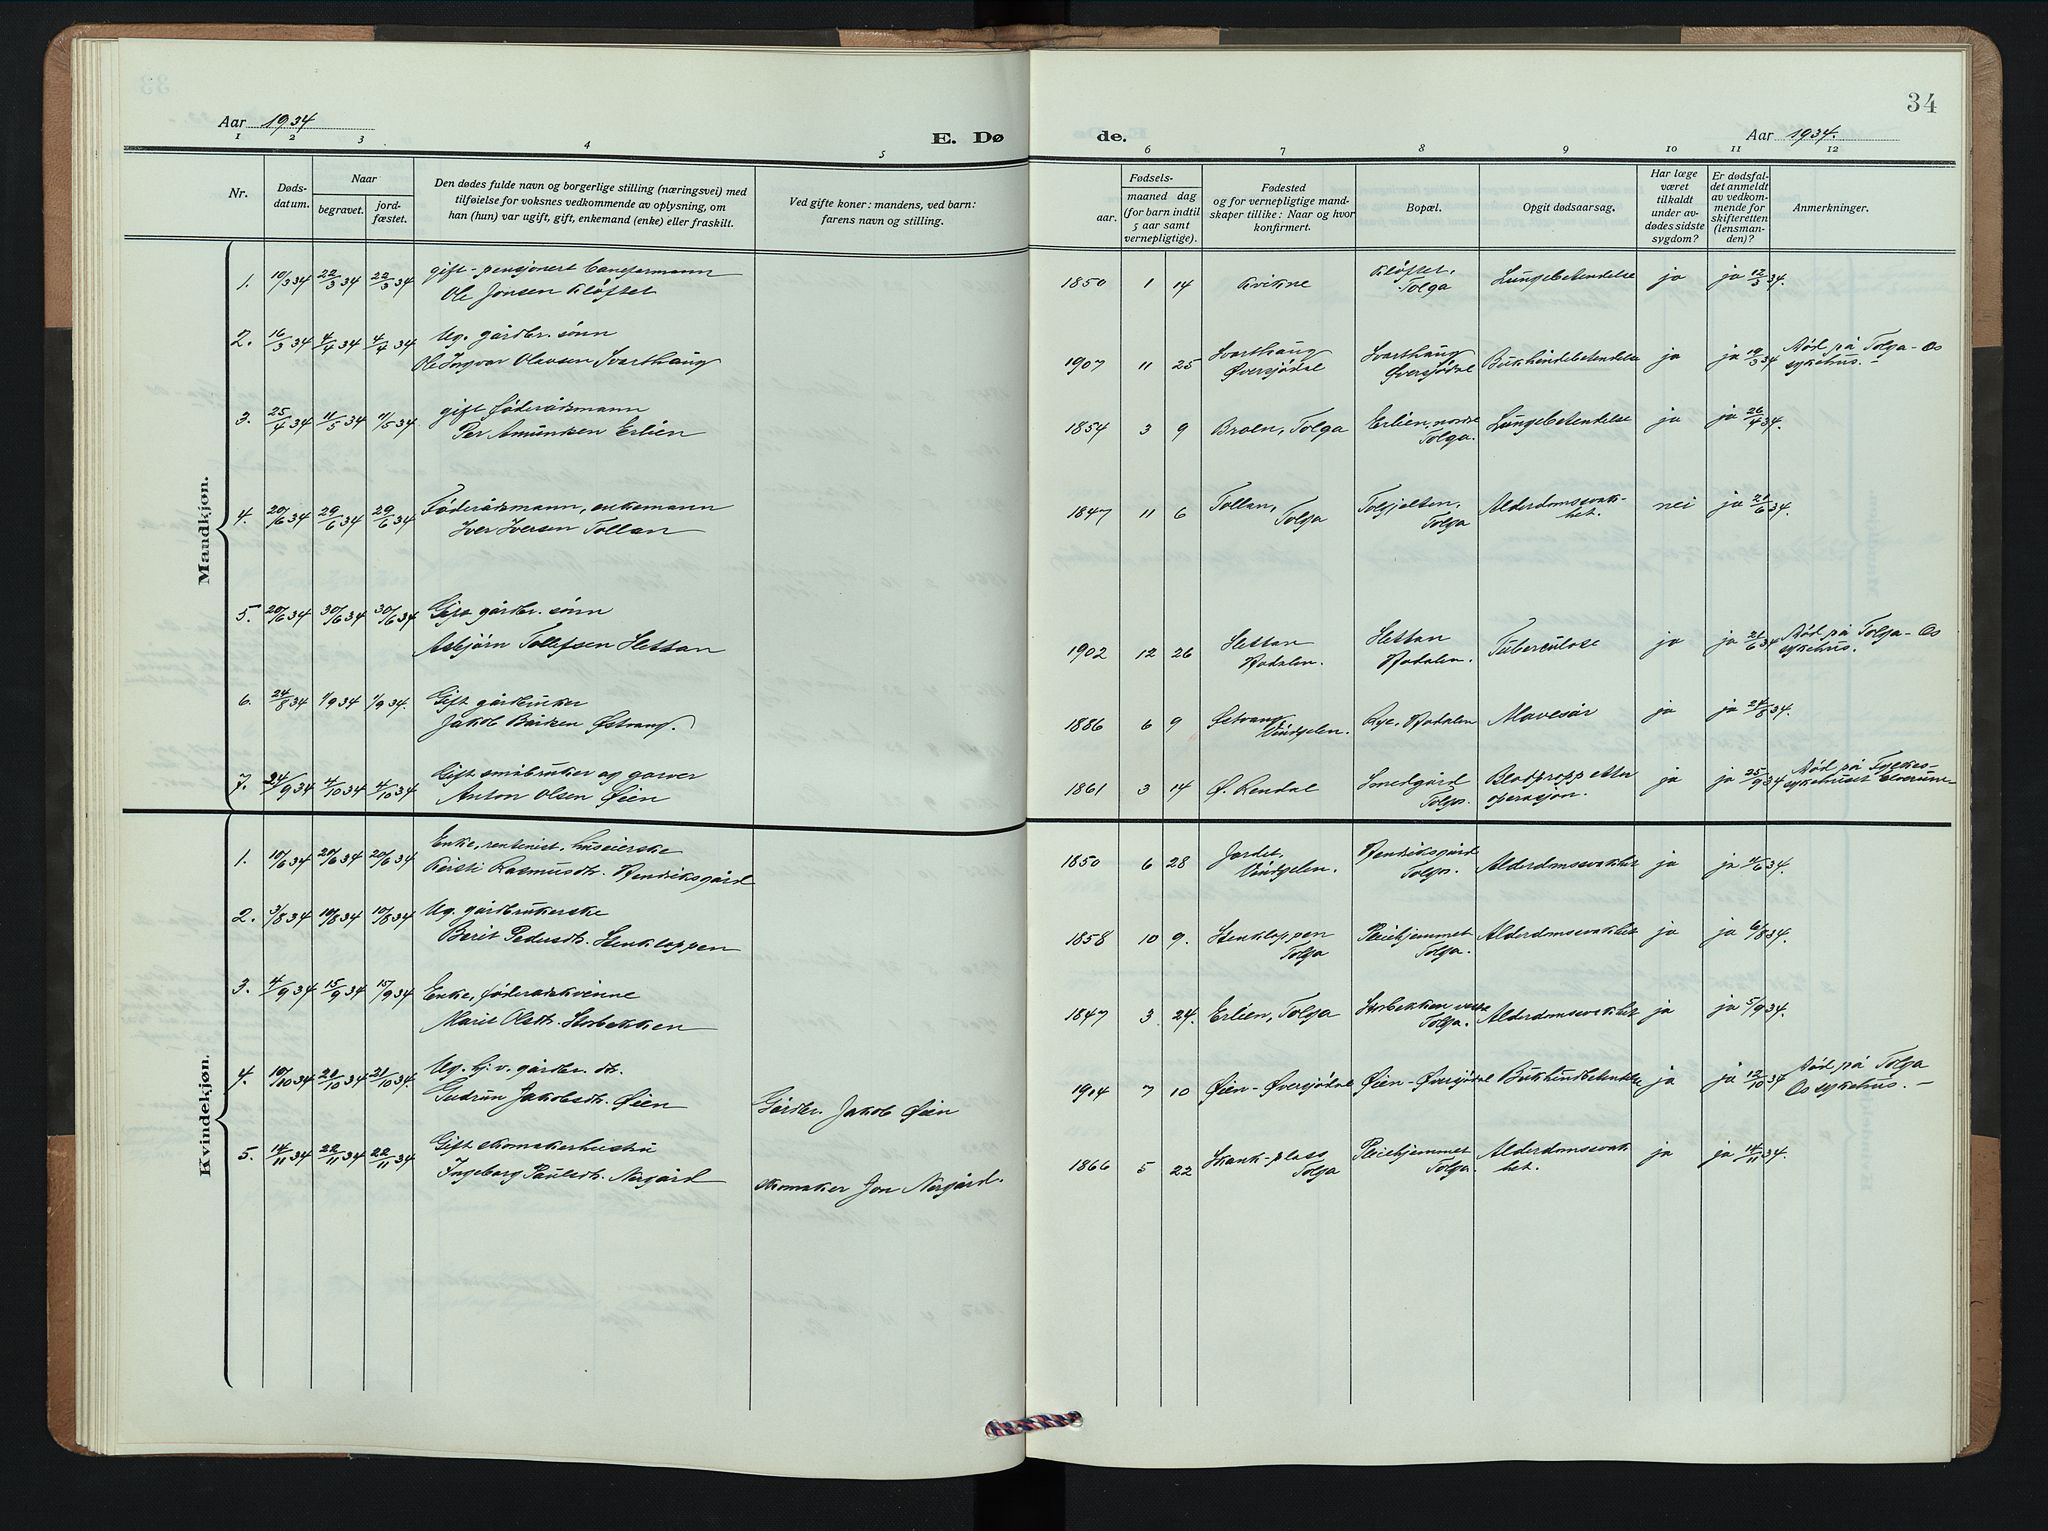 34
Aar 1934
E. Dø
de.
Aar 1934.
1 2 3 4 5 6 7 8 9 10 11 12
Nr.
Døds-
datum.
Naar
begravet.
jord-
fæstet.
Den dødes fulde navn og borgerlige stilling (næringsvei) med
tilføielse for voksnes vedkommende av oplysning, om
han (hun) var ugift, gift, enkemand (enke) eller fraskilt.
Ved gifte koner: mandens, ved barn:
farens navn og stilling.
Fødsels-
aar.
maaned dag
(for barn indtil
5 aar samt
vernepligtige).
Fødested
og for vernepligtige mand-
skaper tillike: Naar og hvor
konfirmert.
Bopæl.
Opgit dødsaarsag.
Har læge
været
tilkaldt
under av-
dødes sidste
sygdom?
Er dødsfal-
det anmeldt
av vedkom-
mende for
skifteretten
(lensman-
den)?
Anmerkninger.
Mandkjøn.
1. 10/3 34 22/3 34 22/3 34 gift - pensjonert baneformann
Ole Jonsen Kløftet
1850 1 14 Kvikne Kløftet, Tolga Lungebetendelse ja ja 12/3 34.
2. 16/3 34 4/4 34 4/4 34 Ug. gårdbr. sønn
Ole Ingvar Olavsen Svarthaug
1907 11 25 Svarthaug Øversjødal Svarthaug Øversjødal Bukhindebetendelse ja ja 19/3 34 Død på Tolga-Os sykehus.-
3. 25/4 34 11/5 34 11/5 34 gift føderådsmann
Per Amundsen Erlien
1854 3 9 Broen, Tolga Erlien, nordre Tolga. Lungebetendelse ja ja 26/4 34.
4. 20/6 34 29/6 34 29/6 34 Føderådsmann, enkemann
Iver Iversen Tollan
1847 11 6 Tollan, Tolga Tolga Alderdomssvak-het. nei ja 21/6 34.
5. 20/6 34 30/6 34 30/6 34 Gift gårdbr. sønn
Asbjørn Tollefsen Hettan
1902 12 26 Hettan Hodalen. Hettan Hodalen. Tuberculose ja ja 21/6 34 Død på Tolga-Os sykehus.
6. 24/8 34 1/9 34 1/9 34. Gift gårdbruker
Jakob Bårdsen Østvang.
1886 6 9 Vingelen. Hodalen Mavesår ja ja 27/8 34.
7. 24/9 34 4/10 34 4/10 34 Gift småbruker og garver
Anton Olsen Øien
1861 3 14 Ø. Rendal Smedgård Tolga. Blodpropp etter operasjon. ja ja 25/9 34 Død på sykehuset Elverum-
Kvindekjøn.
1. 10/6 34 20/6 34 20/6 34 Enke, rentenist, huseierske
Kirsti Rasmusdt. Hendriksgård
1850 6 28 Jordet, Vingelen. Hendriksgård Tolga. Alderdomssvakhet ja ja 11/6 34.
2. 3/8 34 10/8 34 10/8 34 Ug. gårdbrukerske
Berit Pedersdt. Stenkloppen
1858 10 9. Stenkloppen Tolga Pleiehjemmet Tolga. Alderdomssvakhet ja ja 6/8 34.
3. 4/9 34 15/9 34 15/9 34 Enke, føderådskvinne
Marit Olsdt. Storbekken
1847 3 24. Erlien, Tolga Storbekken vestre Tolga. Alderdomssvakhet ja ja 5/9 34.
4. 10/10 34 21/10 34 21/10 34 Ug. hj. v. gårdbr. dt.
Gudrun Jakobsdt. Øien Gårdbr. Jakob Øien
1904 7 10 Øien-Øversjødal Øien-Øversjødal Bukhindbetendelse ja ja 12/10 34 Død på Tolga Os sykehus.-
5. 14/11 34 22/11 34 22/11 34 Gift skomakerhustru
Ingeborg Paulsdt. Nergård skomaker Jon Nergård.
1866 5 22 Skank-plass Tolga Pleiehjemmet Tolga. Alderdomssvak het. ja ja 14/11 34.